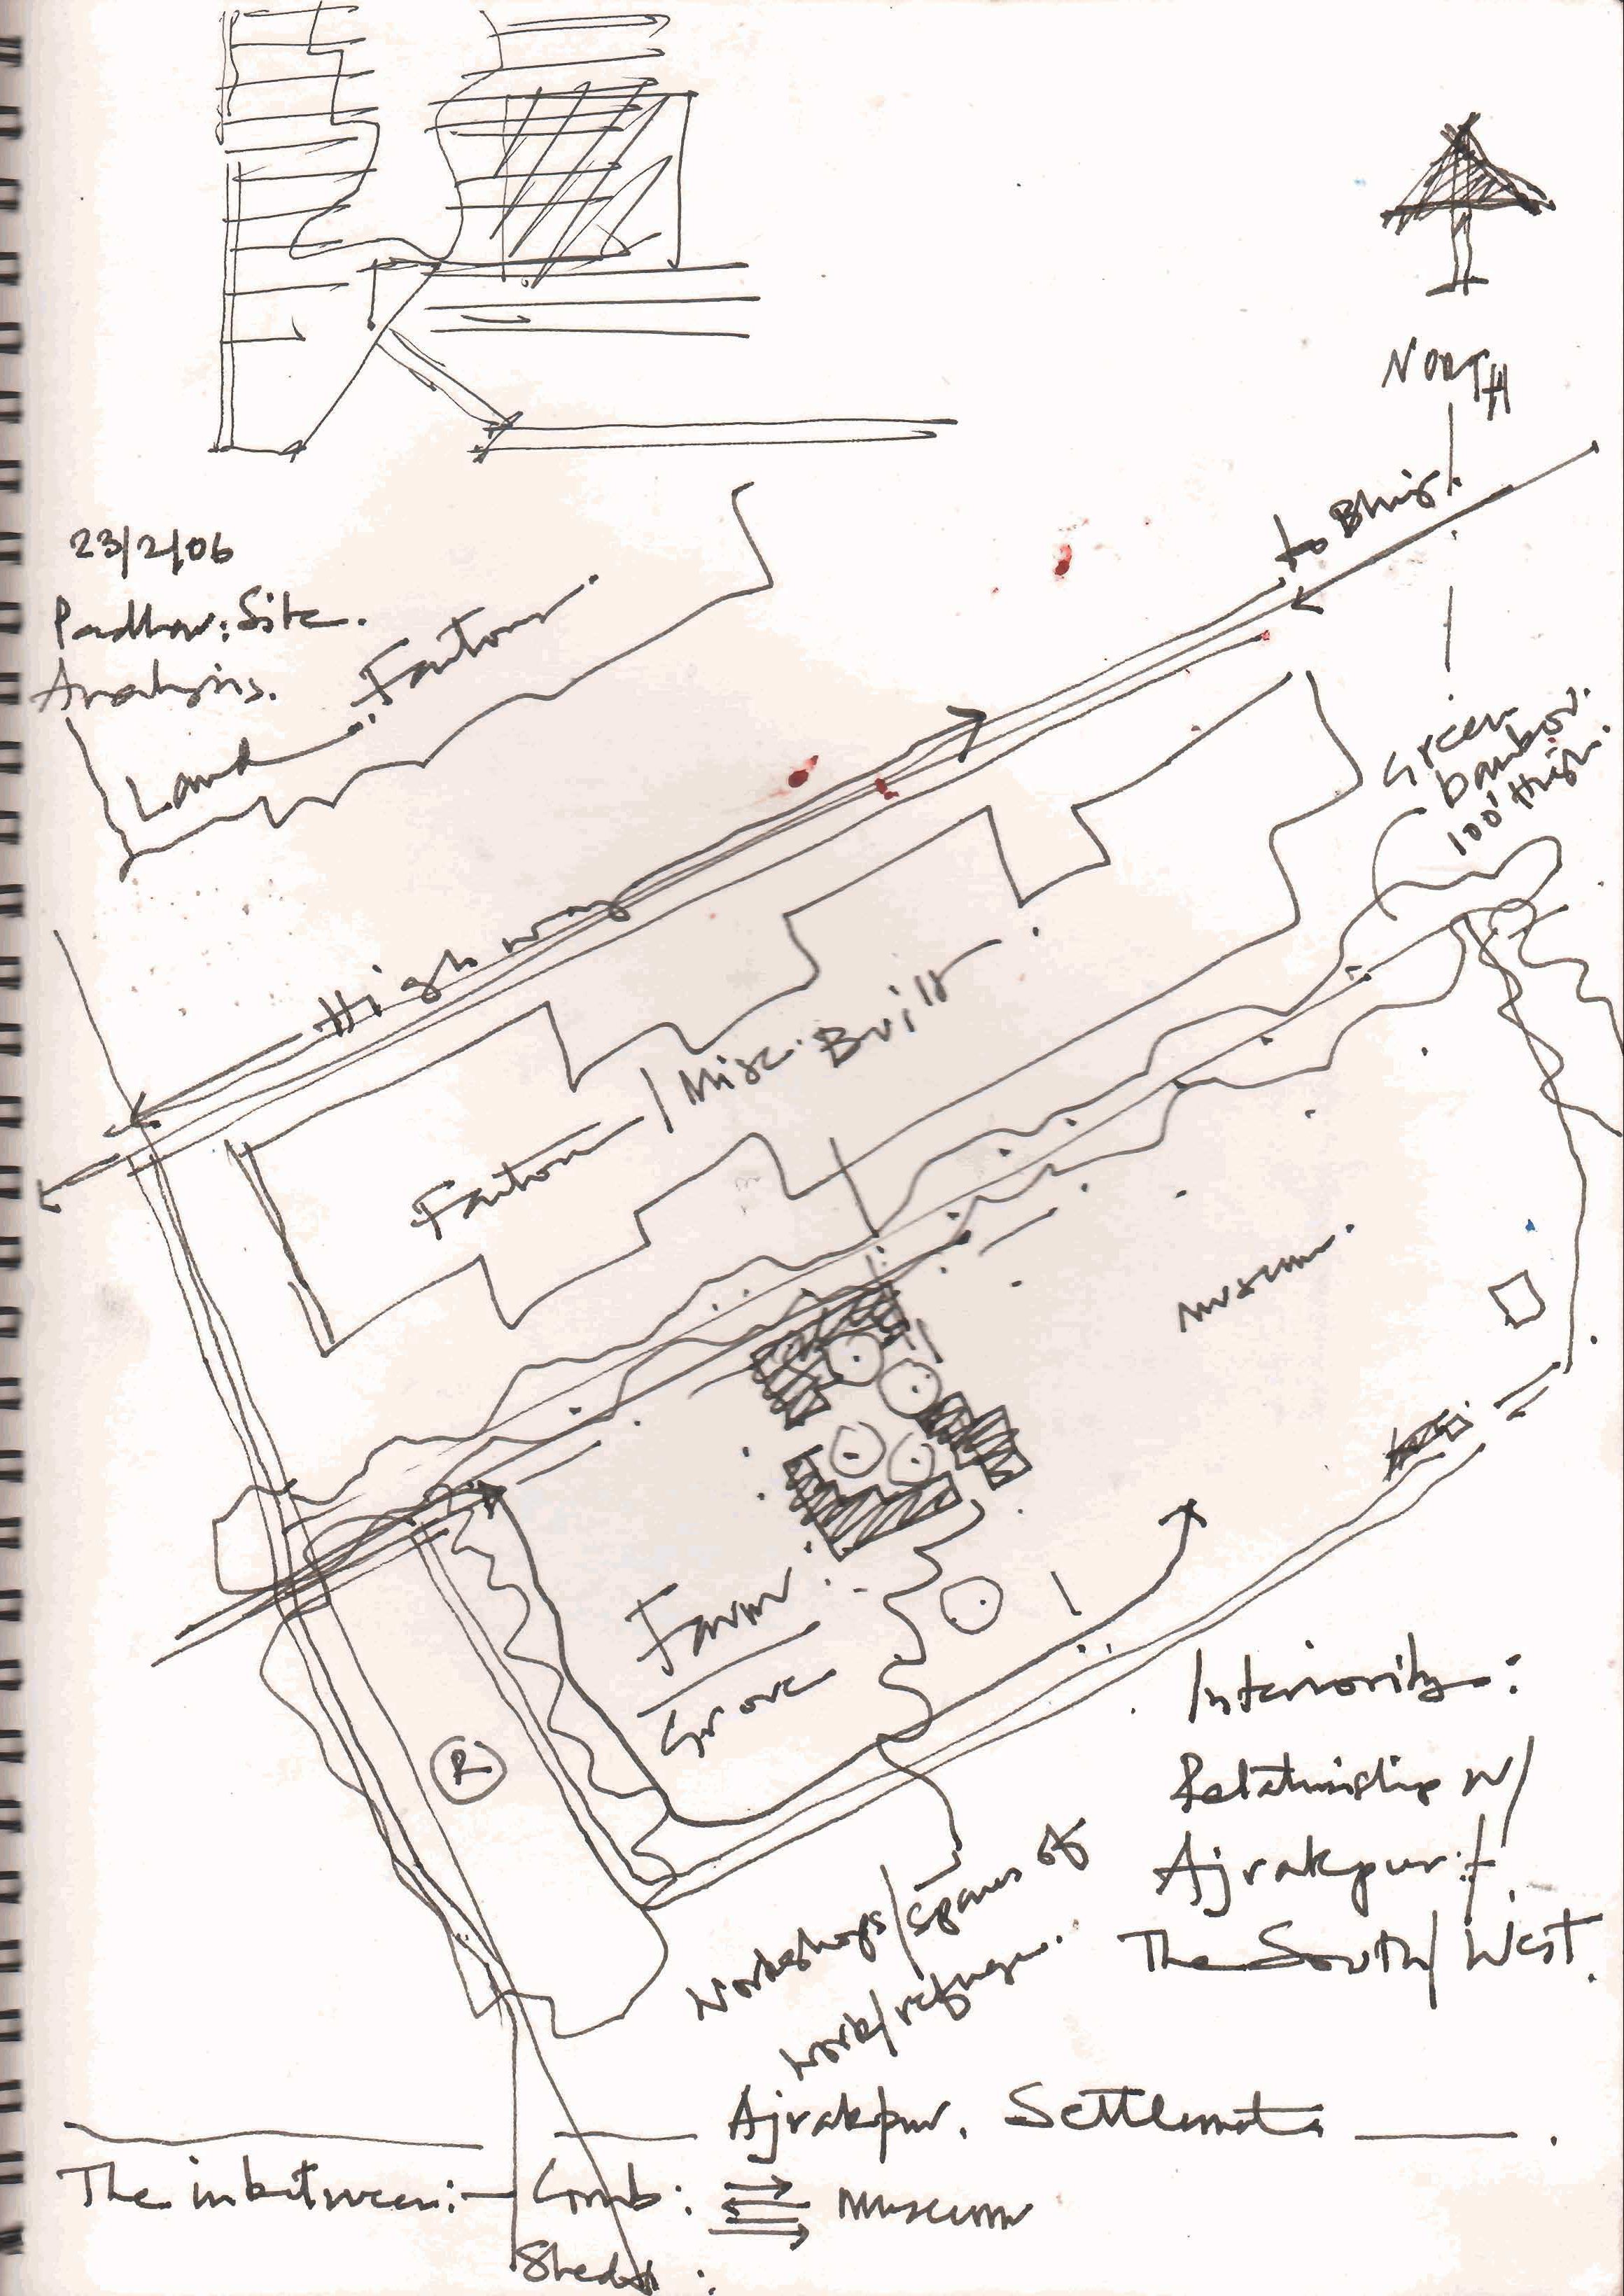 NORTH
to Bhuj
23/2/06
Padhar: Site.
Analysis.
Land: Factory.
Green
bamboo.
100' High.
Highway
Factory / Misc. Built.
Museum.
Farm:
Grove
R
Interiority:
Relationship w/
Ajrakpur:
The South/West.
Workshops/spaces of
work/refuge.
Ajrakpur. Settlement
The inbetween:- Comb: museum
Sheds: